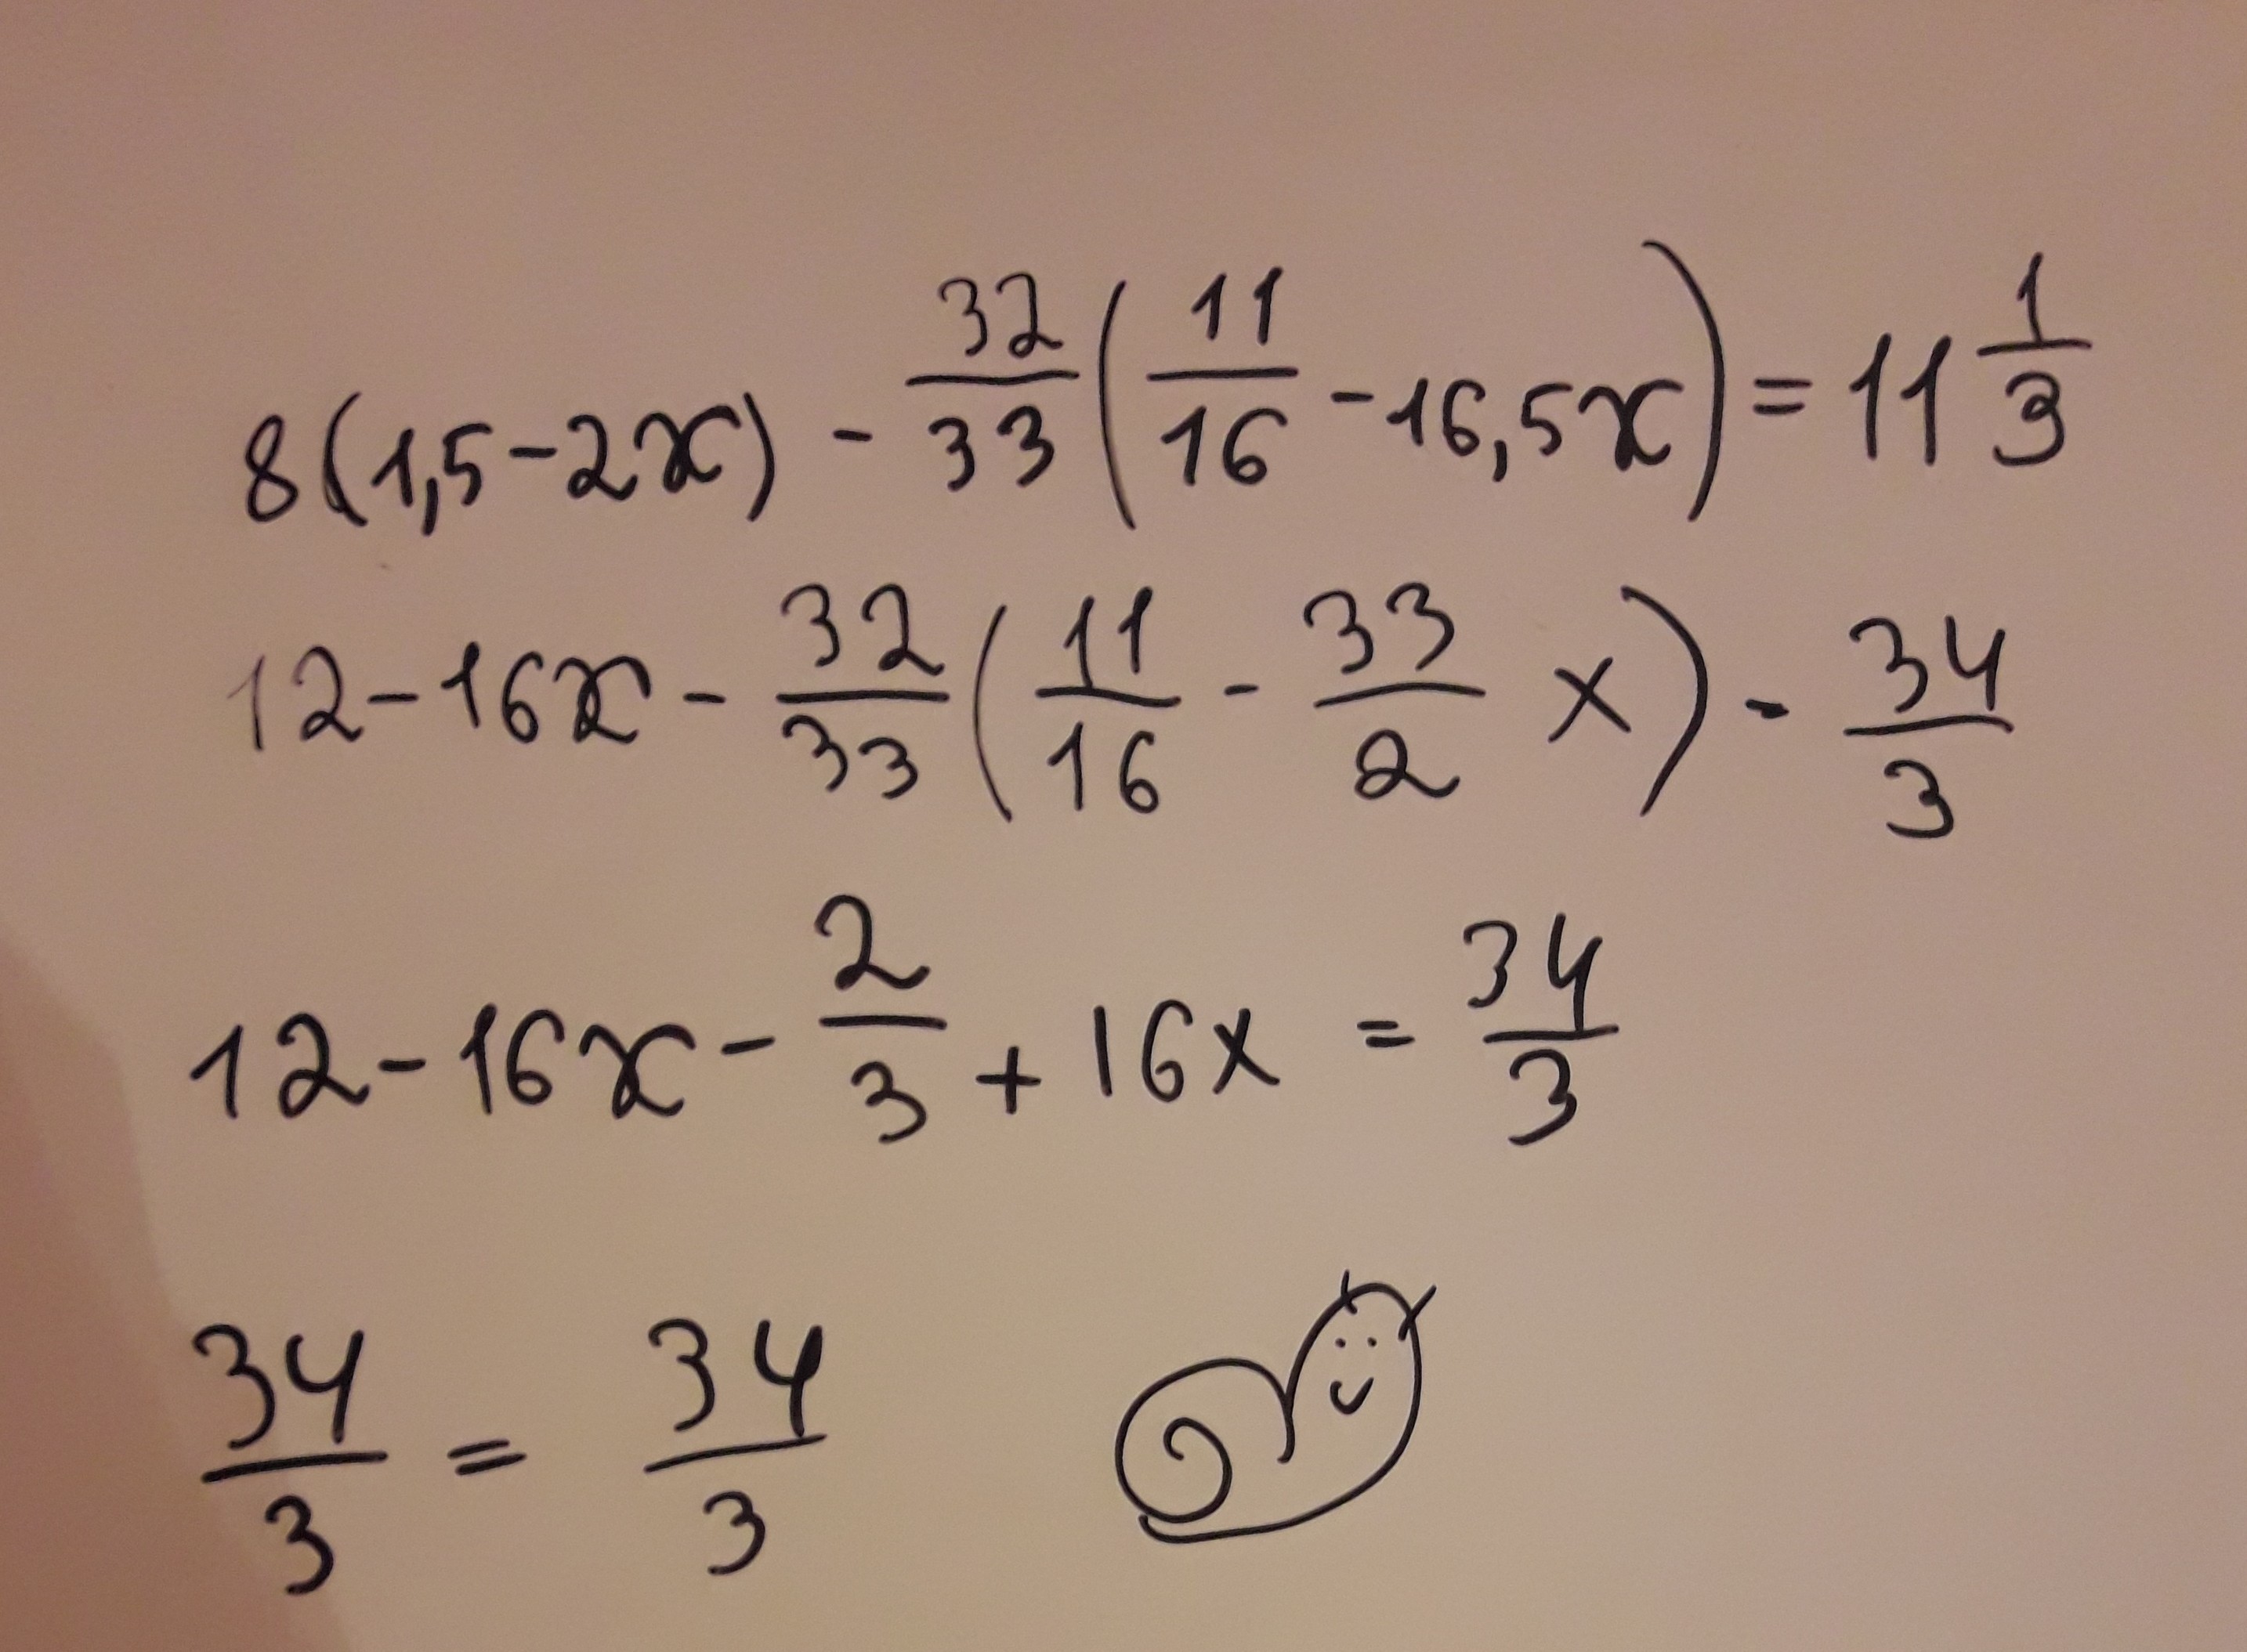 8(1,5-2x) - 32/33 (11/16 - 16,5x) = 11 1/3
12 - 16x - 32/33 (11/16 - 33/2 x) - 34/3
12 - 16x - 2/3 + 16x = 34/3
34/3 = 34/3